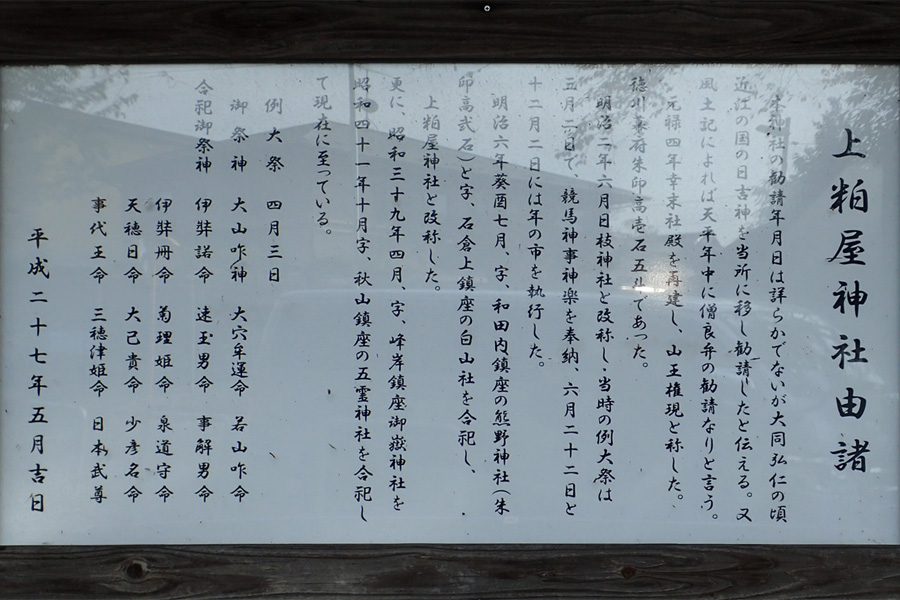 上粕屋神社由諸
本神社の勧請年月日は詳らかでないが大同弘仁の頃
近江の国の日吉神を当所に移し勧請したと伝える。又
風土記によれば天平年中に僧良弁の勧請なりと言う。
元禄四年幸末社殿を再建し、山王権現と称した。
徳川幕府朱印高壱石五斗であった。
明治二年六月日枝神社と改称し、当時の例大祭は
五月二日で、競馬神事神楽を奉納、六月二十二日と
十二月二日には年の市を執行した。
明治六年葵酉七月、字、和田内鎮座の熊野神社(朱
印高弐石)と字、石倉上鎮座の白山社を合祀し、
上粕屋神社と改称した。
更に、昭和三十九年四月、字、峰岸鎮座御嶽神社を
昭和四十一年十月字、秋山鎮座の五霊神社を合祀し
て現在に至っている。
例大祭 四月三日
御祭神 大山咋神 大穴牟運命 若山咋命
合祀御祭神 伊弉諾命 速玉男命 事解男命
伊弉冊命 菊理姫命 泉道守命
天穂日命 大己貴命 少彦名命
事代王命 三穂津姫命 日本武尊
平成二十七年五月吉日